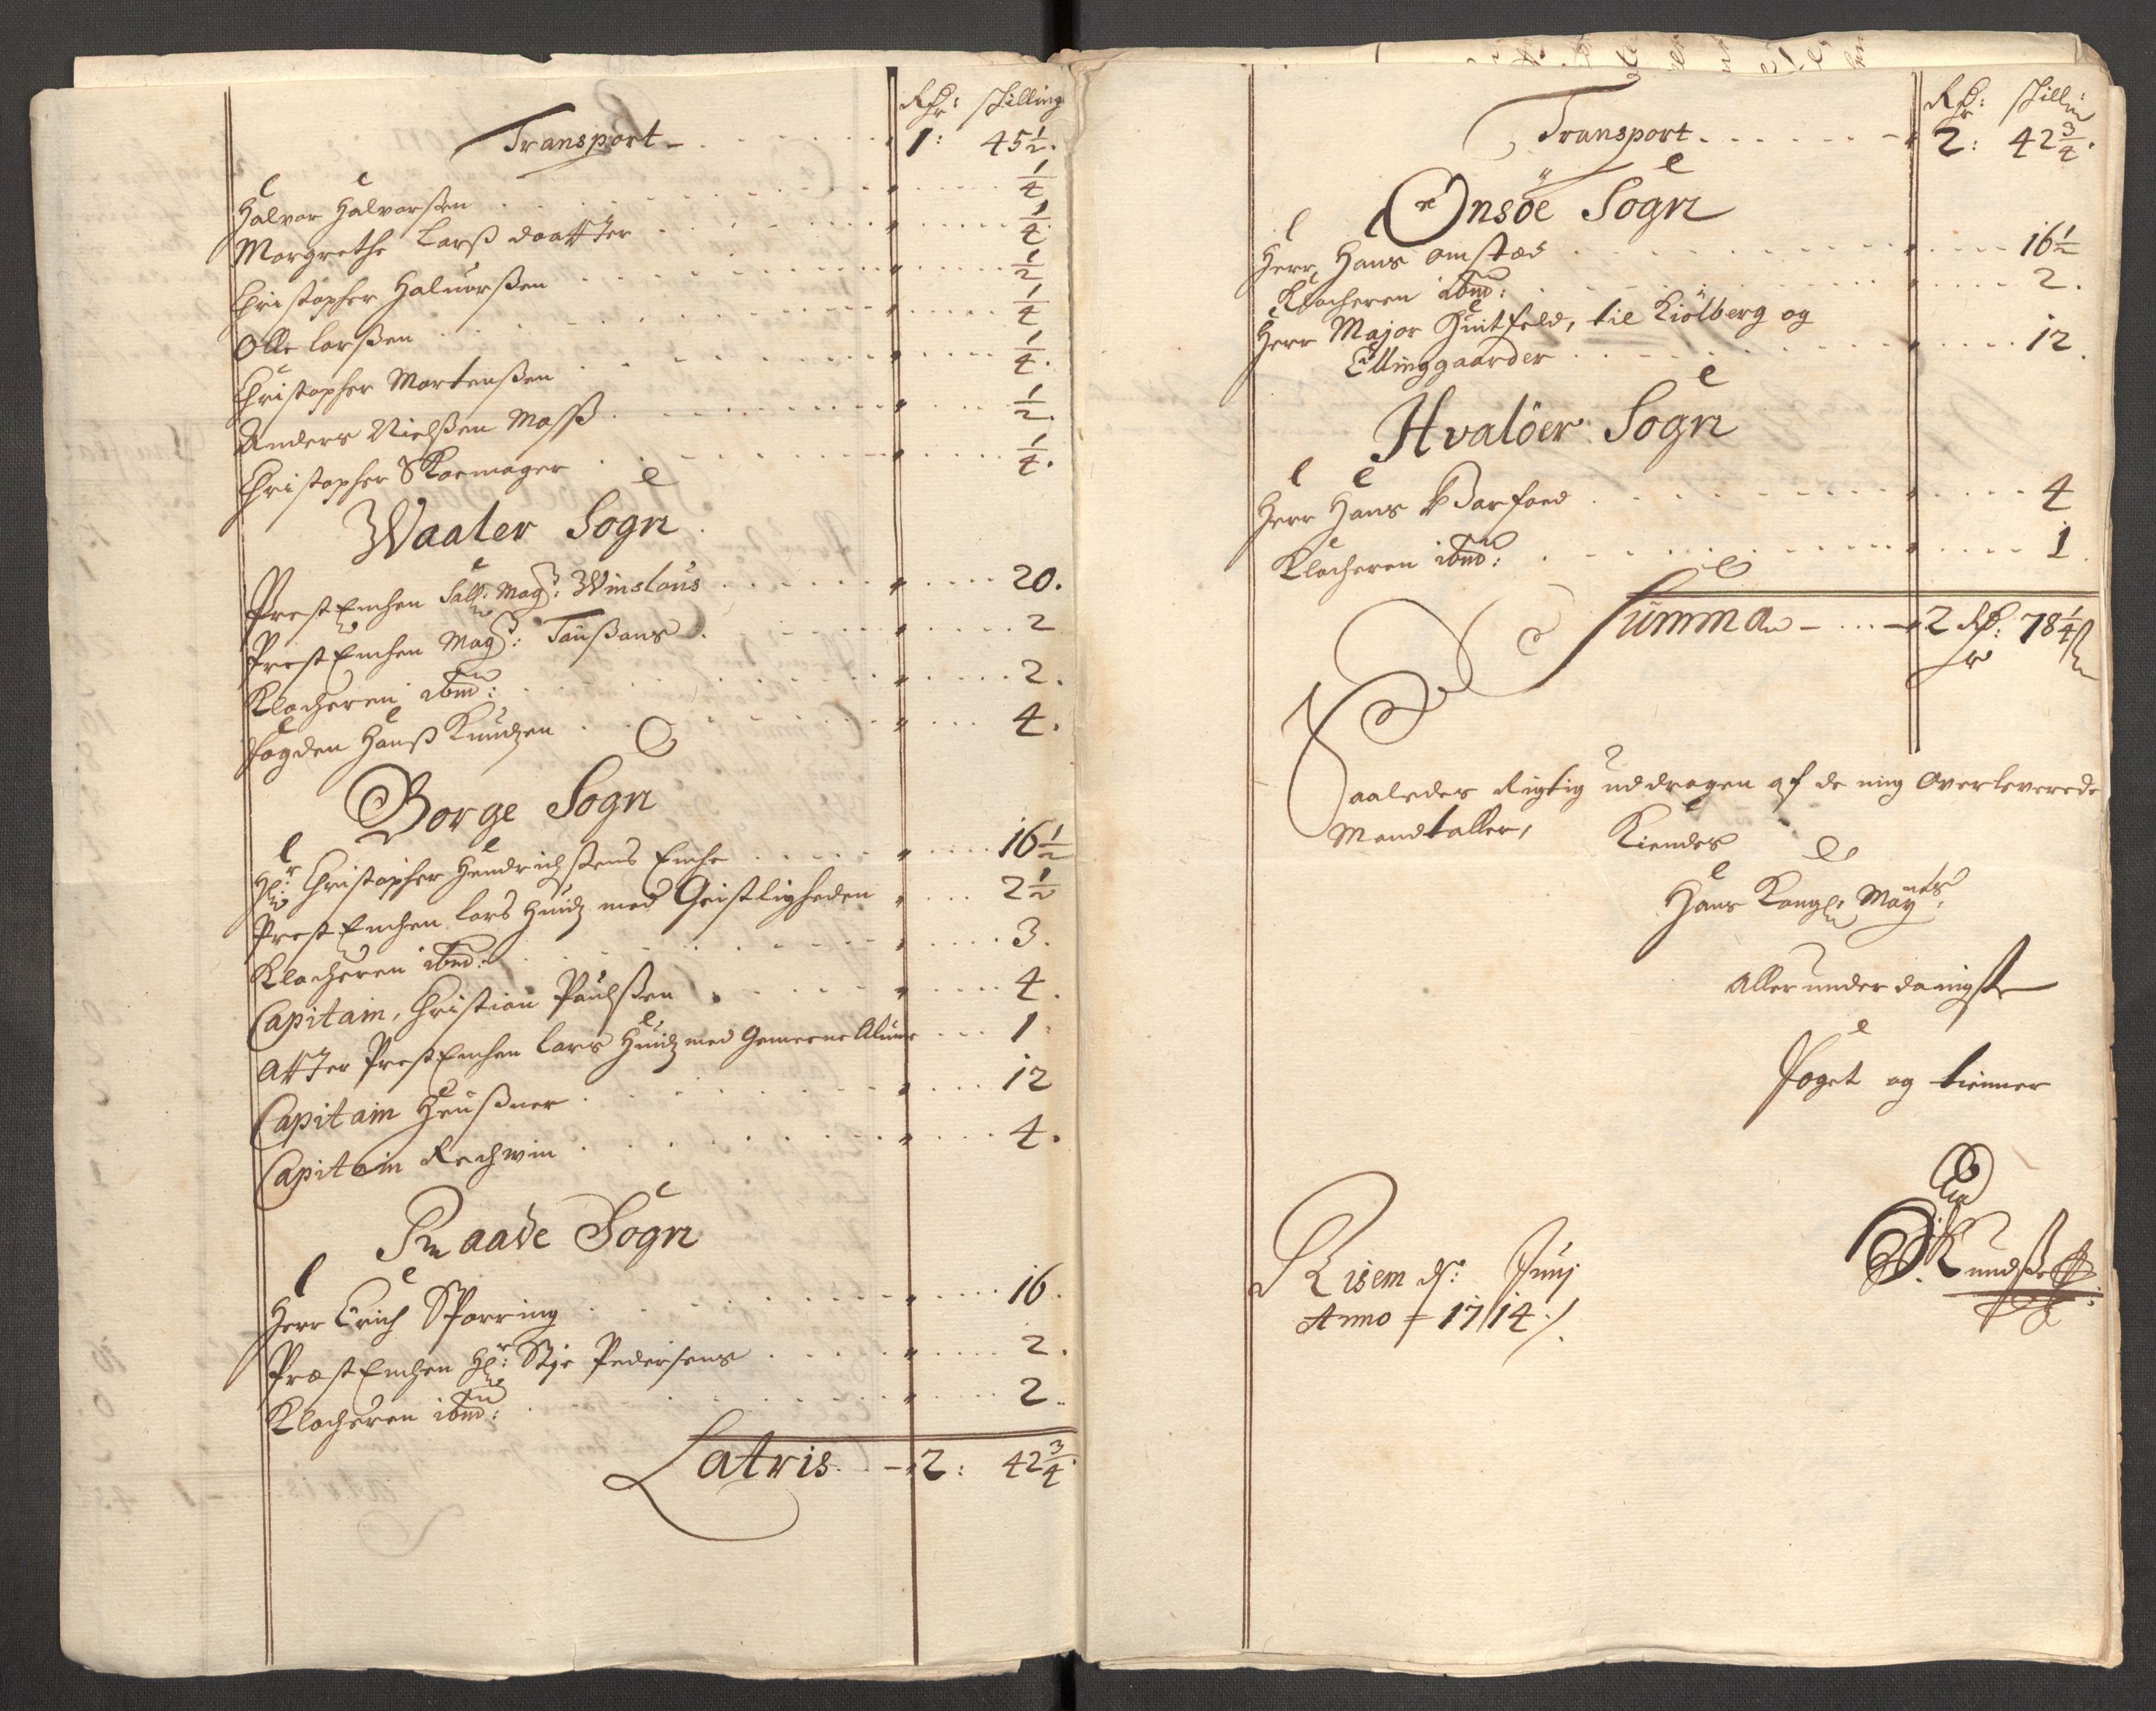 Rdr: skilling
Transport - 1: 45½.
Halvor Halvorsßen ¼
Margrethe Larß daatter ¼
Christopher Haluorßen ½
Olle Larßen ¼
Christopher Mortenßen ¼.
Anders Nielßen Moss ½.
Christopher Skoemager ¼.
Waaler Sogn
Prest Enchen Sall: Mag: Winslous 20.
Prest Enchen Mag: Taußans 2
Klocheren ibm: 2.
Fogden Hanß Knudzen 4.
Borge Sogn
Hr: Christopher Hendrichßens Enche 16½
Prest Enchen Lars med Geistligheden 2½
Klocheren ibm: 3.
Capitain, Christian Paulßen 4.
Atter Prest Enchen Lars med Gemeene Almue 1
Capitain Heußner 12
Capitain Rechwin 4.
Raade Sogn
Herr Erich Sparring 16.
Præst Enchen Hr: Stje Pedersens 2.
Klocheren ibm: 2.
Latris - 2: 42¾
Rdr: skilling
Transport - 2: 42¾.
Onsöe Sogn
Herr, Hans omstæd 16½
Klocheren ibm: 2.
Herr Major Huitfeld, til Kiölberg og
Ellinggaarder 12.
Hvalöer Sogn
Herr Hans Barfoed 4
Klocheren ibm: 1.
Summa - 2 Rdr: 78¼ s
Saaledes Rigtig uddragen af de mig Overleverede
Mandtaller, Kiendes
Hans Kongl: Mayts:
Aller underdanigste
Foget og tienner
Knudßen
Risem d: Junj
Anno 1714